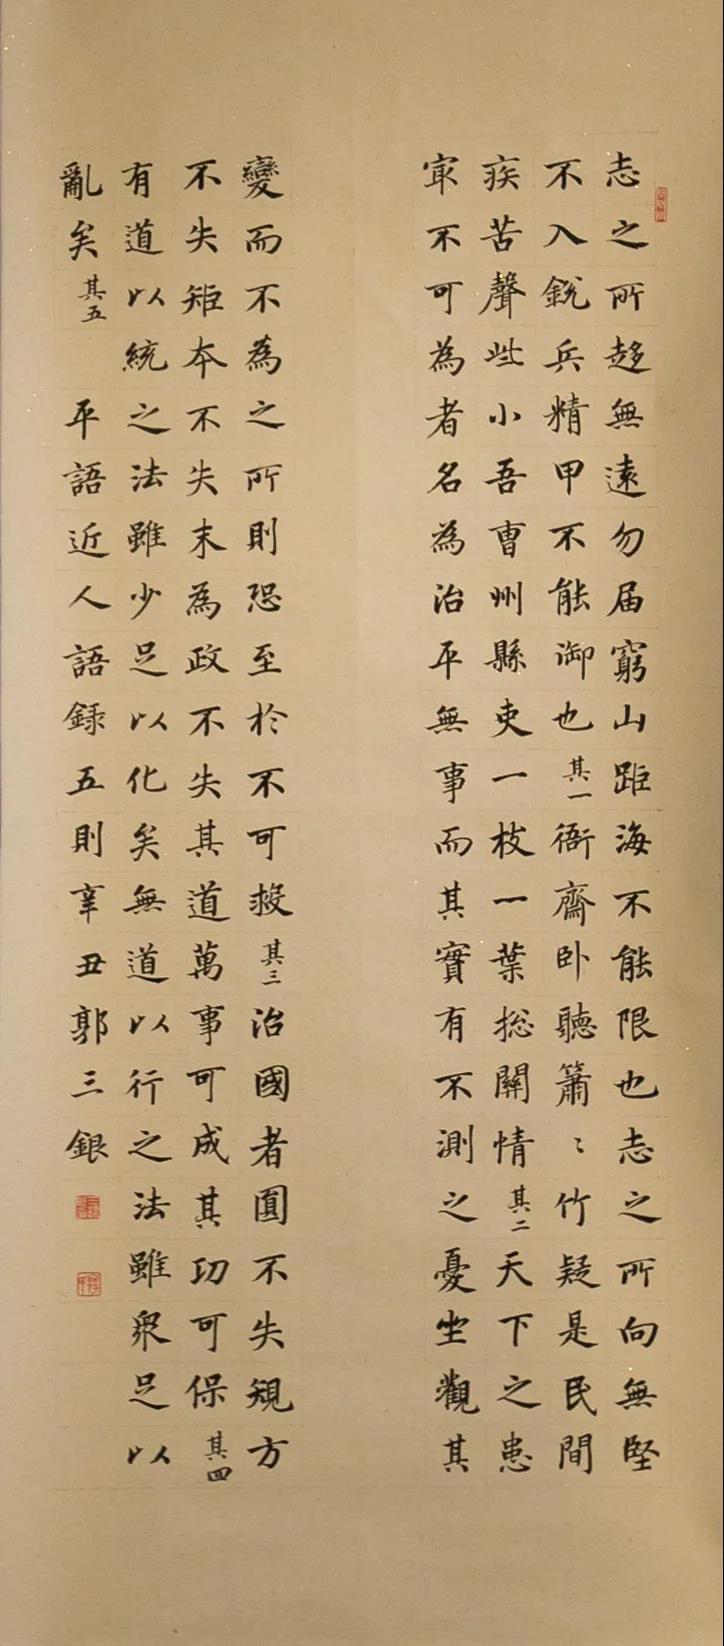 志之所趍無遠勿届窮山距海不能限也志之所向無堅
不入銳兵精甲不能御也其一衙齋卧聽簫〻竹疑是民間
疾苦聲些小吾曹州縣吏一枝一葉総關情其二天下之患
㝡不可為者名為治平無事而其實有不測之憂坐觀其
變而不為之所則恐至於不可救其三治國者圓不失規方
不失矩本不失末為政不失其道萬事可成其功可保其四
有道以統之法雖少足以化矣無道以行之法雖衆足以
亂矣其五 平語近人語録五則辛丑郭三銀